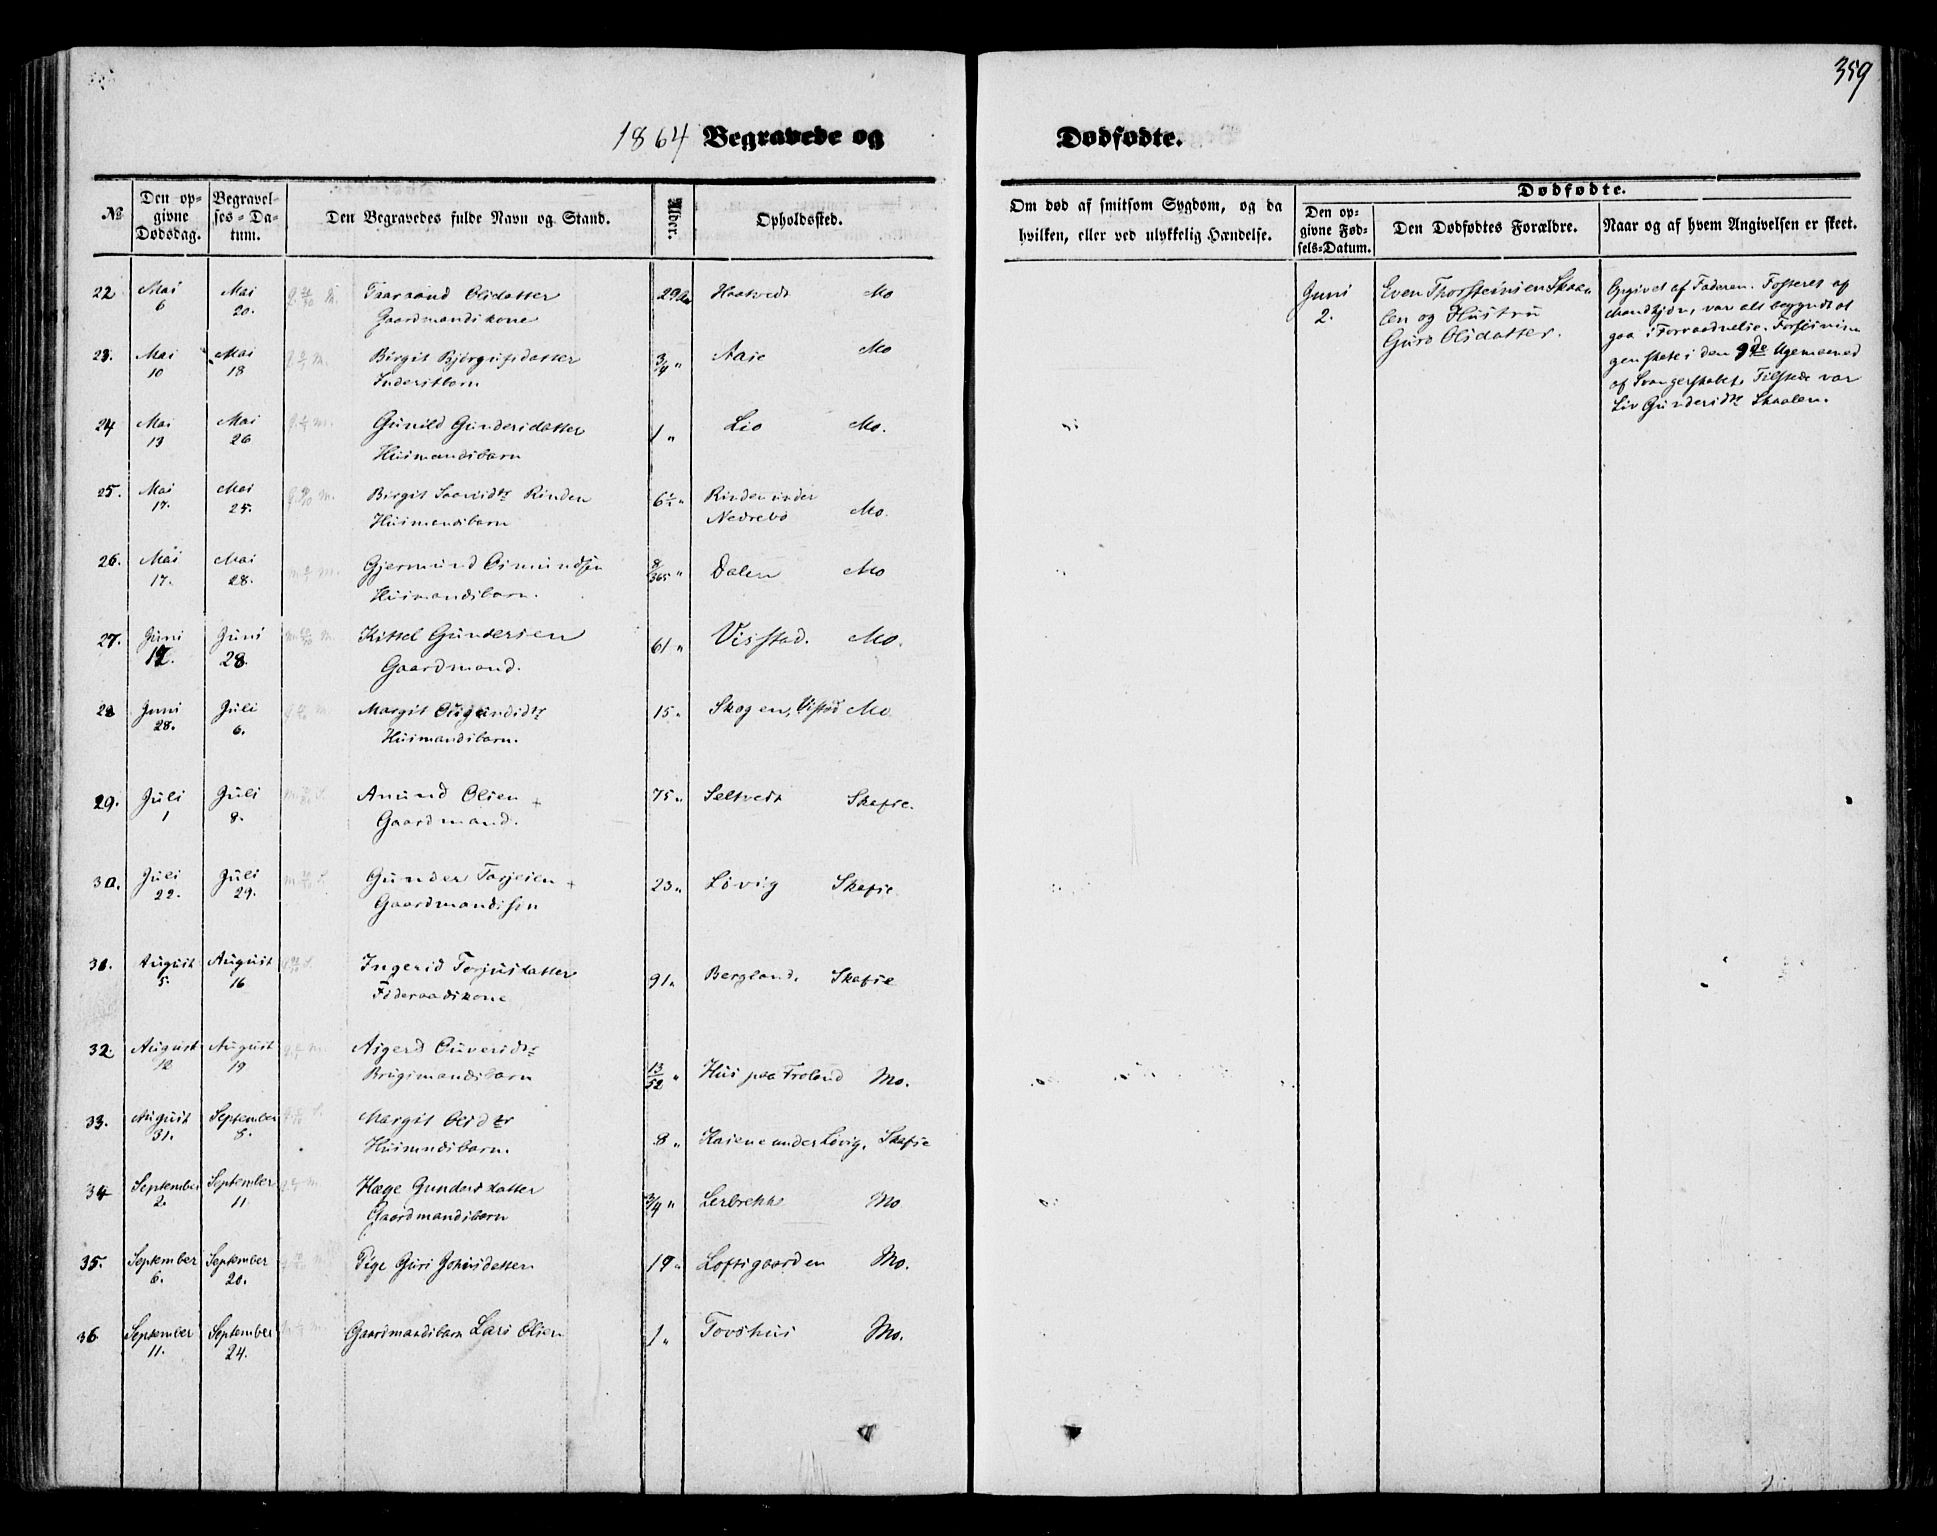 359
1864 Begravede og Dødfødte.
№
Den opgivne Dødsdag.
Begravelses-Datum.
Den Begravedes fulde Navn og Stand.
Alder.
Opholdssted.
Om død af smitsom Sygdom, og da
hvilken, eller ved ulykkelig Hændelse.
Dødfødte.
Den opgivne Fødsels-Datum.
Den Dødfødtes Forældre.
Naar og af hvem Angivelsen er skeet.
22 Mai 6 Mai 20. Taaraand Olsdatter 29 Haatvedt Mo
Gaardmandskone
23. Mai 10 Mai 18 Birgit Bjørgufsdatter 3/4 " Aase Mo
Inderstbarn
24 Mai 13 Mai 26 Gunild Gundersdatter 1 " Lio Mo.
Huusmandsbarn
25. Mai 17. Mai 25. Birgit Saavesdtr Rinden 6½ " Rinden under
Huusmandsbarn Nedrebø Mo.
26. Mai 17. Mai 28. Gjermund Osmundsen 8/365 " Dalen Mo
Huusmandsbarn.
27. Juni 17. Juni 28. Kittel Gundersen 61 " Visstad. Mo.
Gaardmand.
28 Juni 28. Juli 6. Margit Ougundsdtr 15 " Skogen, Vistad Mo
Huusmandsbarn.
29. Juli 1 Juli 8. Anund Olsen + 75 " Seltvedt Skafse.
Gaardmand.
30. Juli 22. Juli 29. Gunder Torjesen + 23 " Løvig Skafse
Gaardmandssøn
31. August 5. August 16 Ingerid Torjusdatter 91 " Bergland. Skafse
Føderaadskone
32. August 12 August 19 Asgerd Ouversdtr 13/52 " Hus paa Troland Mo.
Brugsmandsbarn
33. August 31. September 8. Margit Olsdtr 8 " Kasene under Løvig, Skafse
Huusmndsbarn.
34 September 2. September 11. Hæge Gundersdatter 3/4 " Lerbrekk Mo
Gaardmandsbarn
35. September 6. September 20. Pige Guri Johnsdatter 19 " Loftsgaarden Mo.
36 September 11. September 24. Gaardmandsbarn Lars Olsen 1 " Tovshus Mo.
Juni
2.
Even Thorsteinsen Skaa-
len og Hustru
Guro Olsdatter.
Opgivet af Faderen. Fosteret af
Mandkjøn, var alt begyndt at
gaa i Forraadnelse. Forløsnin-
gen skete i den 9de Ugemaaned
af Svangerskabet. Tilstede var
Liv Gundersdtr Skaalen.